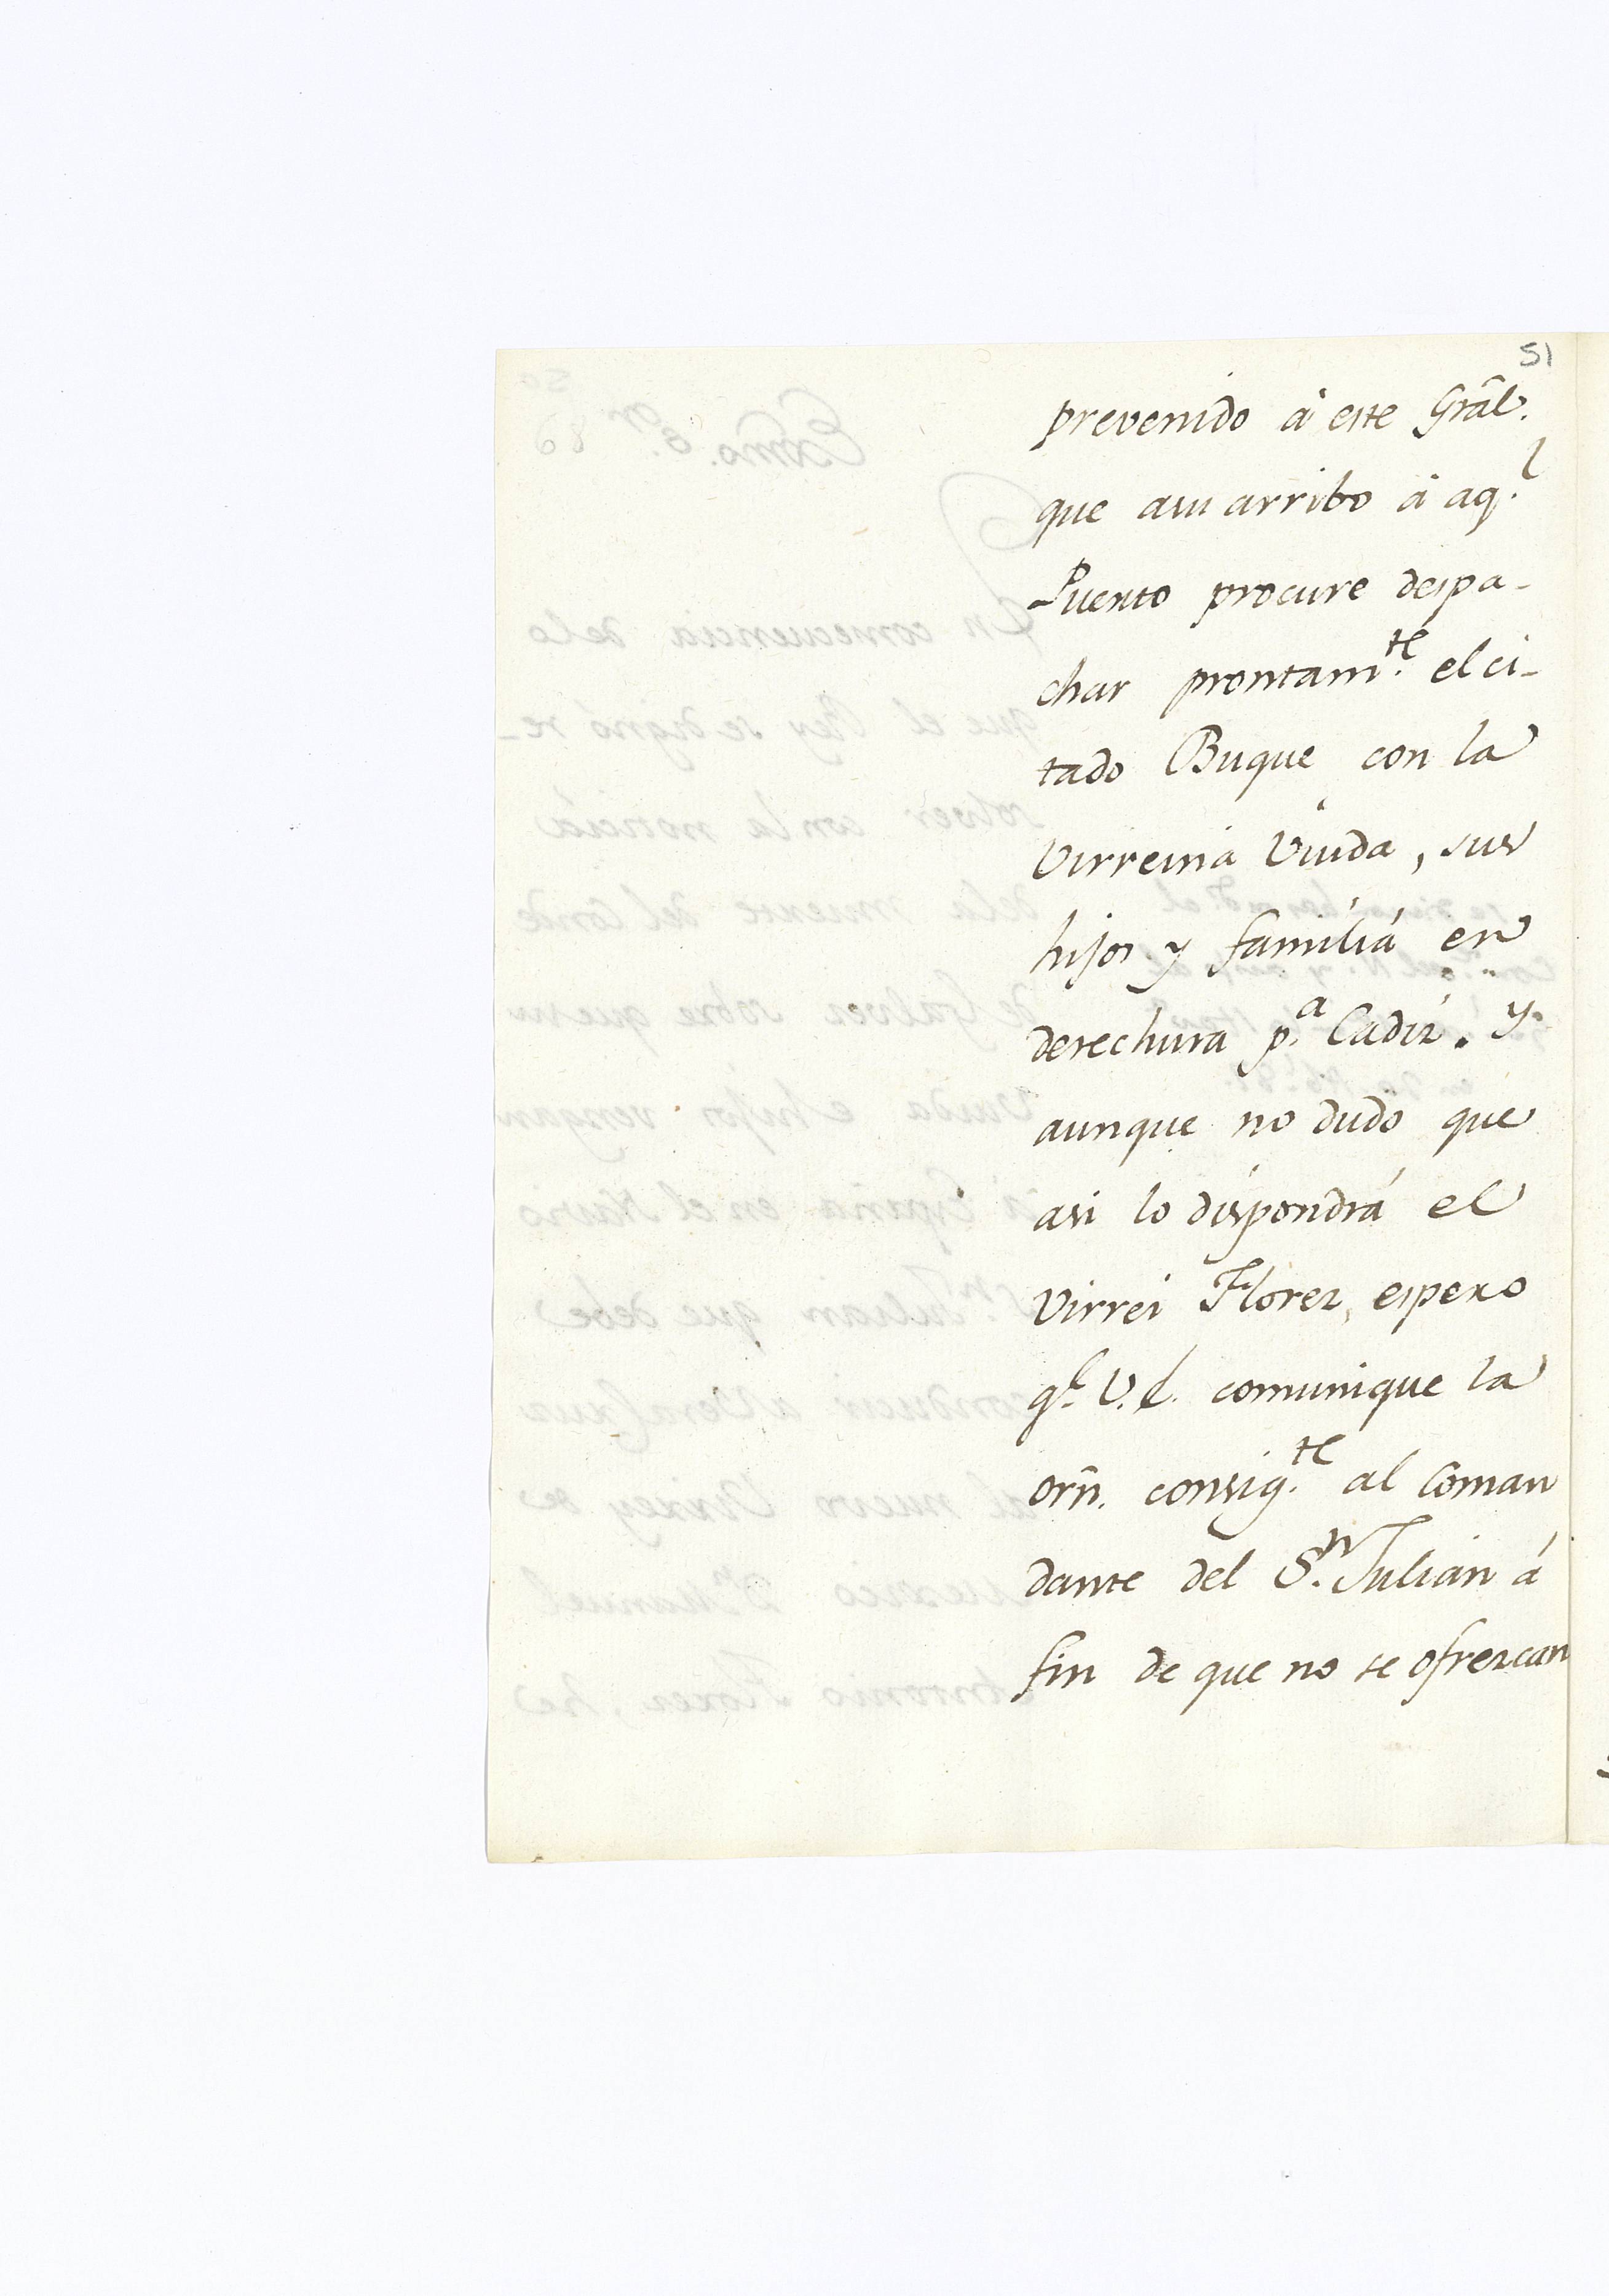 51
prevenido á este Grãl.
que asu arribo á aq.l
Puerto procure despa-
char prontam.te el ci-
tado Buque con la
Virreina Viuda, sus
hijos y familia en
derechura p.a Cadiz. y
aunque no dudo que
asi lo dispondrá el
Virrei Florez, espero
q.e V.E. comunique la
orñ. consig.te al Coman
dante del S.n Julian á
fin de que no se ofrezcan